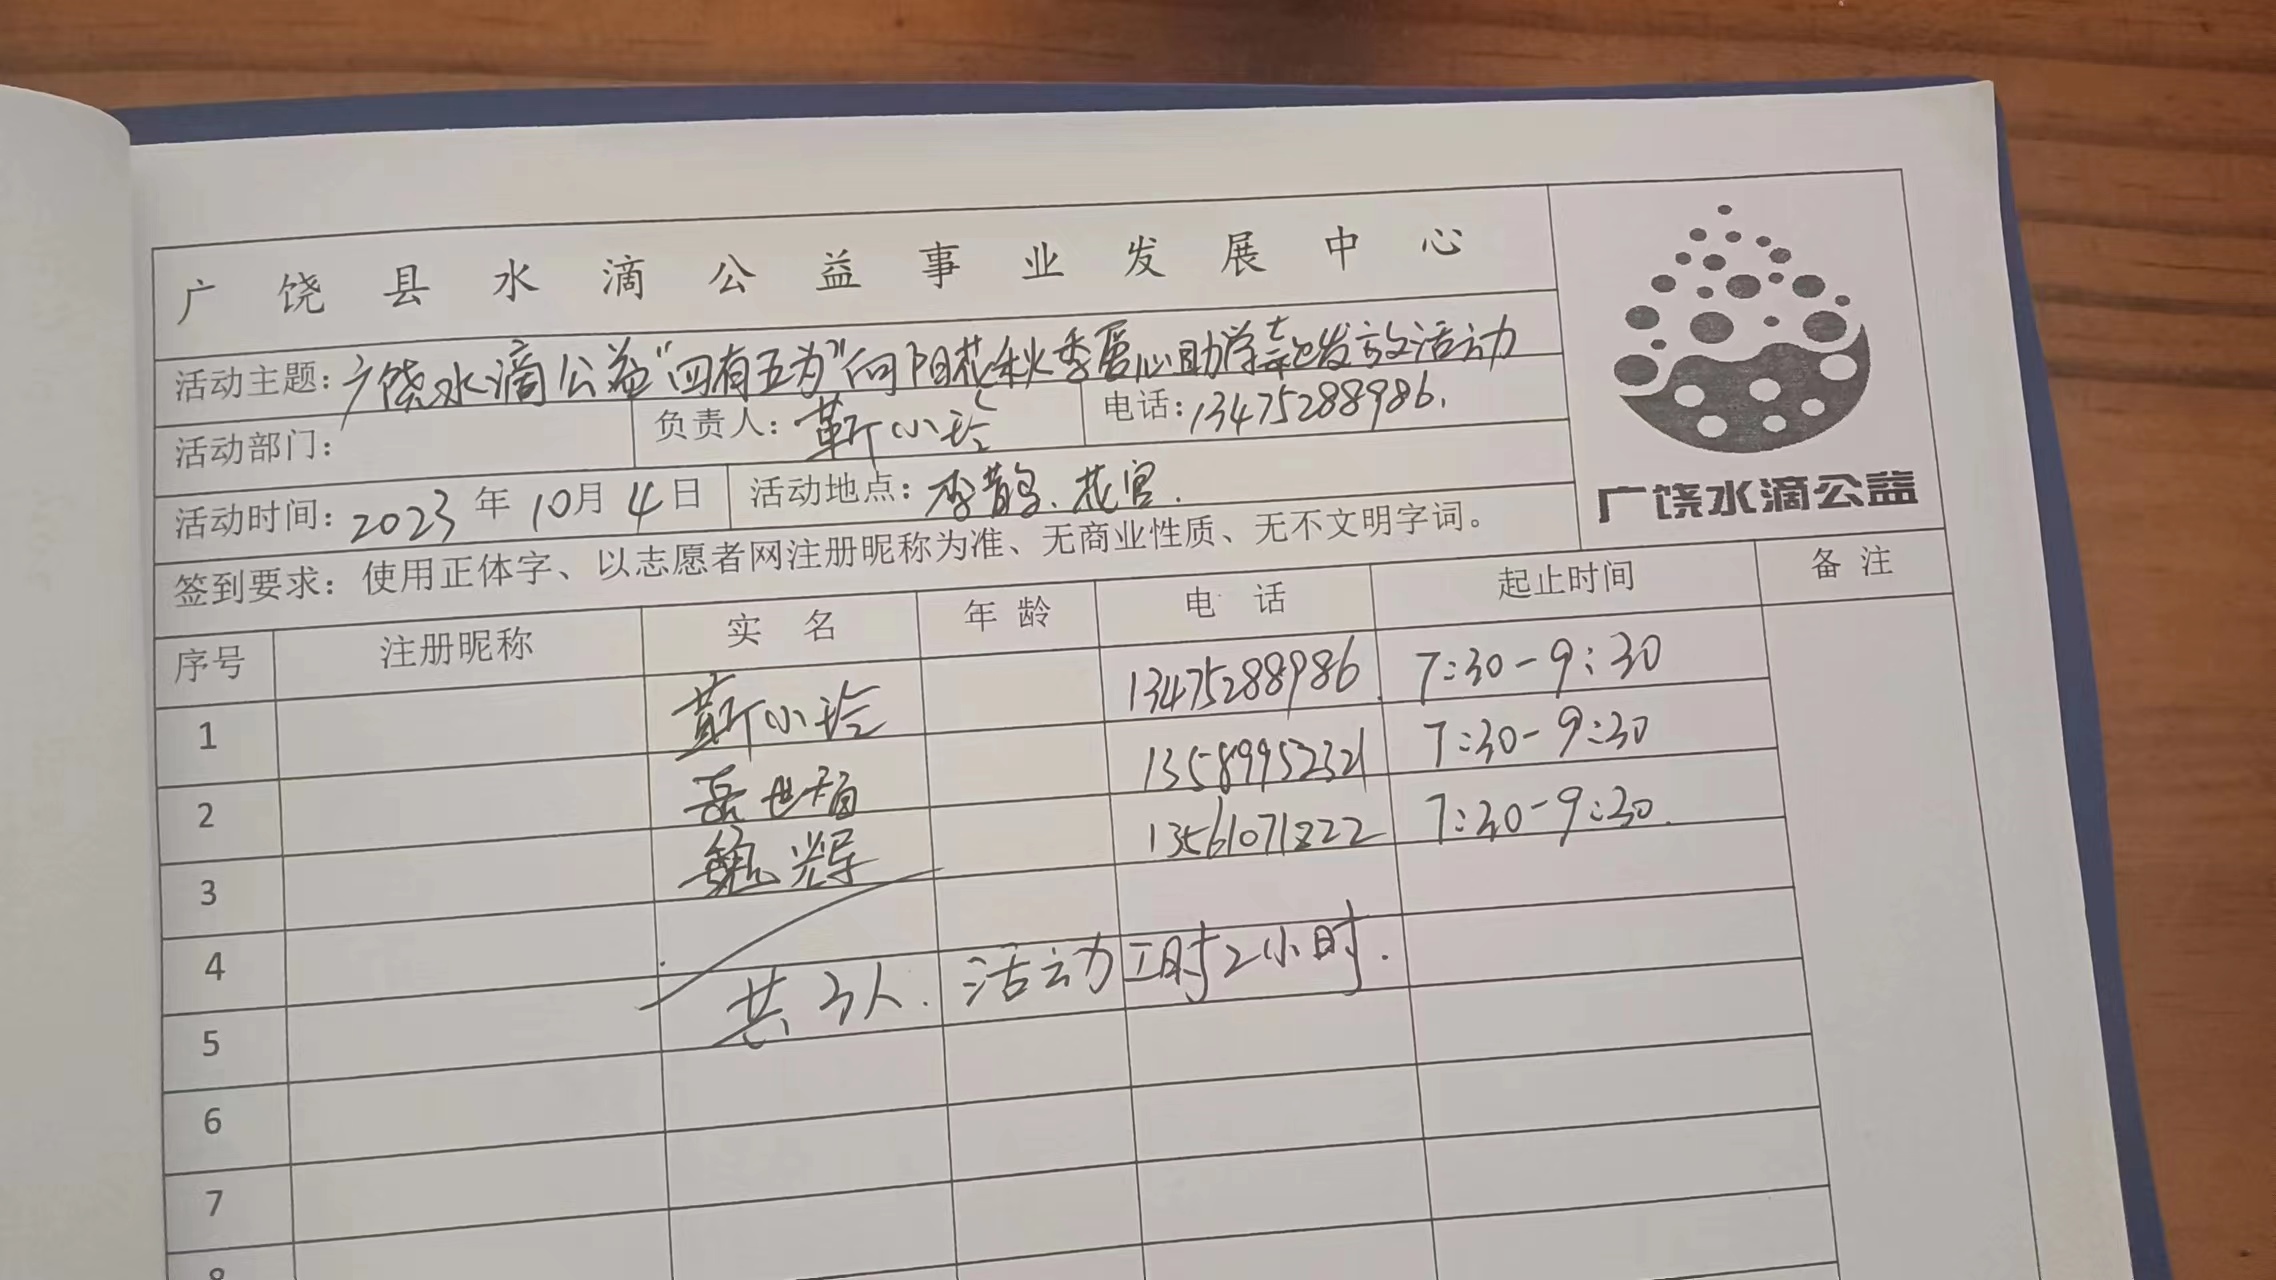 广饶县水滴公益事业发展中心
活动主题：广饶水滴公益“四有五为”向阳花秋季爱心助学款发放活动
活动部门：
负责人：靳小玲
电话：13475288986.
活动时间：2023年10月4日
活动地点：李鹊.花官.
广饶水滴公益
签到要求：使用正体字、以志愿者网注册昵称为准、无商业性质、无不文明字词。
序号 注册昵称 实名 年龄 电话 起止时间 备注
1 靳小玲 13475288986. 7:30-9:30
2 岳世福 13589952321 7:30-9:30
3 魏辉 13561071222 7:30-9:30.
4
共3人.活动工时2小时.
5
6
7
8